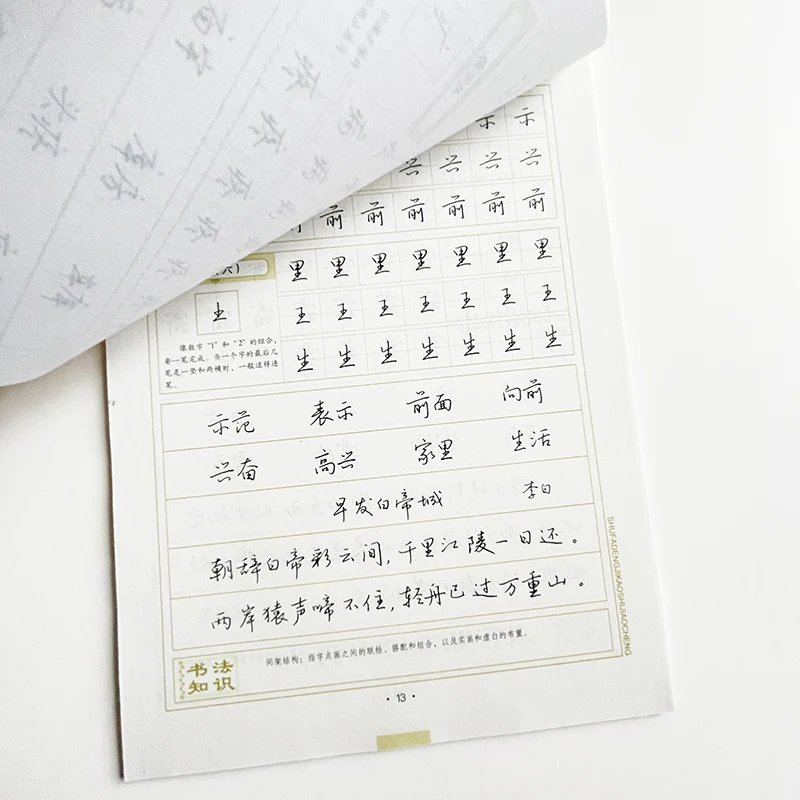 示 示
兴 兴 兴 兴
前 前 前 前 前 前
（六）
里 里 里 里 里 里 里
王 王 王 王 王 王 王
生 生 生 生 生 生 生
像数字“1”和“2”的组合，
要一笔完成。当一个字的最后几
笔是一竖和两横时，一般这样连
笔。
示范 表示 前面 向前
兴奋 高兴 家里 生活
早发白帝城 李白
朝辞白帝彩云间，千里江陵一日还。
两岸猿声啼不住，轻舟已过万重山。
书法
知识
间架结构：指字点画之间的联结、搭配和组合，以及实画和虚白的布置。
·13·
SHUFADENGJIKAOSHIJIAOCHENG